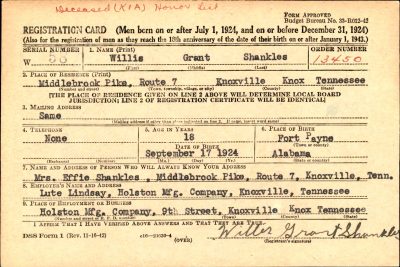 Deceased (KIA) Honor List
Form Approved
Budget Bureau No. 33-R012-42
REGISTRATION CARD (Men born on or after July 1, 1924, and on or before December 31, 1924)
(Also for the registration of men as they reach the 18th anniversary of the date of their birth on or after January 1, 1943.)
SERIAL NUMBER 1. NAME (Print) ORDER NUMBER
W Willis Grant Shankles 13450
2. PLACE OF RESIDENCE (Print)
Middlebrook Pike, Route 7 Knoxville Knox Tennessee
(Number and street) (Town, township, village, or city) (County) (State)
[THE PLACE OF RESIDENCE GIVEN ON LINE 2 ABOVE WILL DETERMINE LOCAL BOARD
JURISDICTION; LINE 2 OF REGISTRATION CERTIFICATE WILL BE IDENTICAL]
3. MAILING ADDRESS
Same
4. TELEPHONE 5. AGE IN YEARS 6. PLACE OF BIRTH
None 18 Fort Payne
DATE OF BIRTH
September 17 1924 Alabama
7. NAME AND ADDRESS OF PERSON WHO WILL ALWAYS KNOW YOUR ADDRESS
Mrs. Effie Shankles, Middlebrook Pike, Route 7, Knoxville, Tenn.
8. EMPLOYER'S NAME AND ADDRESS
Lute Lindsay, Holston Mfg. Company, Knoxville, Tennessee
9. PLACE OF EMPLOYMENT OR BUSINESS
Holston Mfg. Company, 9th Street, Knoxville Knox Tennessee
I AFFIRM THAT I HAVE VERIFIED ABOVE ANSWERS AND THAT THEY ARE TRUE.
DSS Form 1 (Rev. 11-16-42) (OVER) Willis Grant Shankles
(Registrant's signature)